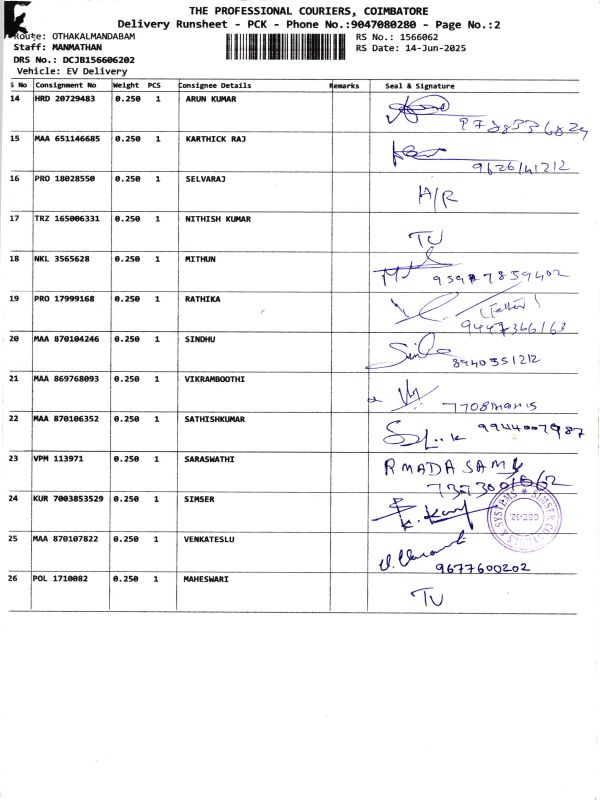 THE PROFESSIONAL COURIERS, COIMBATORE
Delivery Runsheet - PCK - Phone No.:9047080280 - Page No.:2
Route: OTHAKALMANDABAM
RS No.: 1566062
Staff: MANMATHAN
RS Date: 14-Jun-2025
DRS No.: DCJB156606202
Vehicle: EV Delivery
S No Consignment No Weight PCS Consignee Details Remarks Seal & Signature
14 HRD 20729483 0.250 1 ARUN KUMAR
15 MAA 651146685 0.250 1 KARTHICK RAJ
9626141212
16 PRO 18028550 0.250 1 SELVARAJ
H/R
17 TRZ 165006331 0.250 1 NITHISH KUMAR
TU
18 NKL 3565628 0.250 1 MITHUN
19 PRO 17999168 0.250 1 RATHIKA
(Father)
9447366163
20 MAA 870104246 0.250 1 SINDHU
8940551212
21 MAA 869768093 0.250 1 VIKRAMBOOTHI
22 MAA 870106352 0.250 1 SATHISHKUMAR
9944007987
23 VPM 113971 0.250 1 SARASWATHI
R MADASAMY
24 KUR 7003853529 0.250 1 SIMSER
25 MAA 870107822 0.250 1 VENKATESLU
9677600202
26 POL 1710082 0.250 1 MAHESWARI
TU